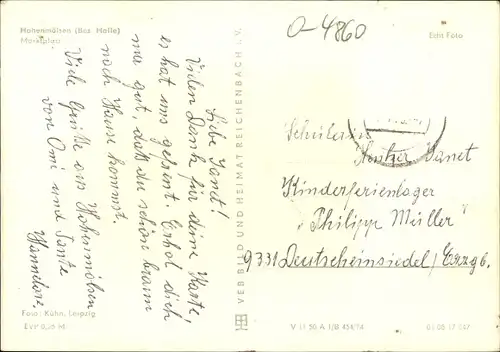 Hohenmölsen (Bez. Halle)
Marktplatz
O-4860
Echt Foto
Liebe Janet!
Vielen Dank für deine Karte,
es hat uns gefreut. Erhol dich
nur gut, daß du schön braun
nach Hause kommst.
Viele Grüße aus Hohenmölsen
von Omi und Tante
Hannelore
VEB BILD UND HEIMAT REICHENBACH i. V.
Schülerin
Janet
Kinderferienlager
"Philipp Müller"
9331 Deutscheinsiedel / Erzgb.
Foto: Kühn, Leipzig
EVP 0,20 M
V 11 50 A 1/B 454/74
01 08 17 047